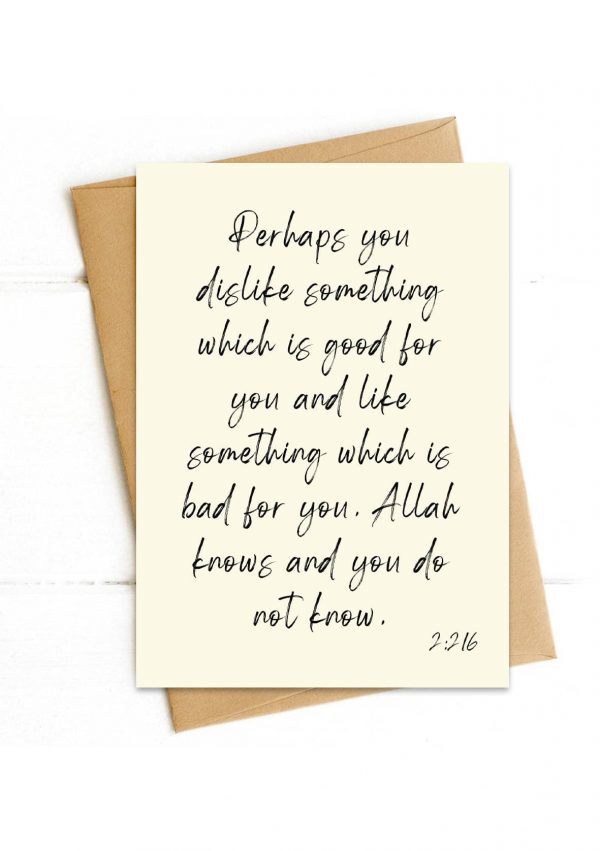 Perhaps you
dislike something
which is good for
you and like
something which is
bad for you. Allah
knows and you do
not know.
2:216